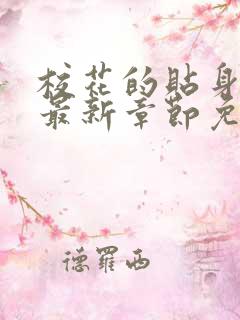 校花的贴身
最新章节免
德罗西